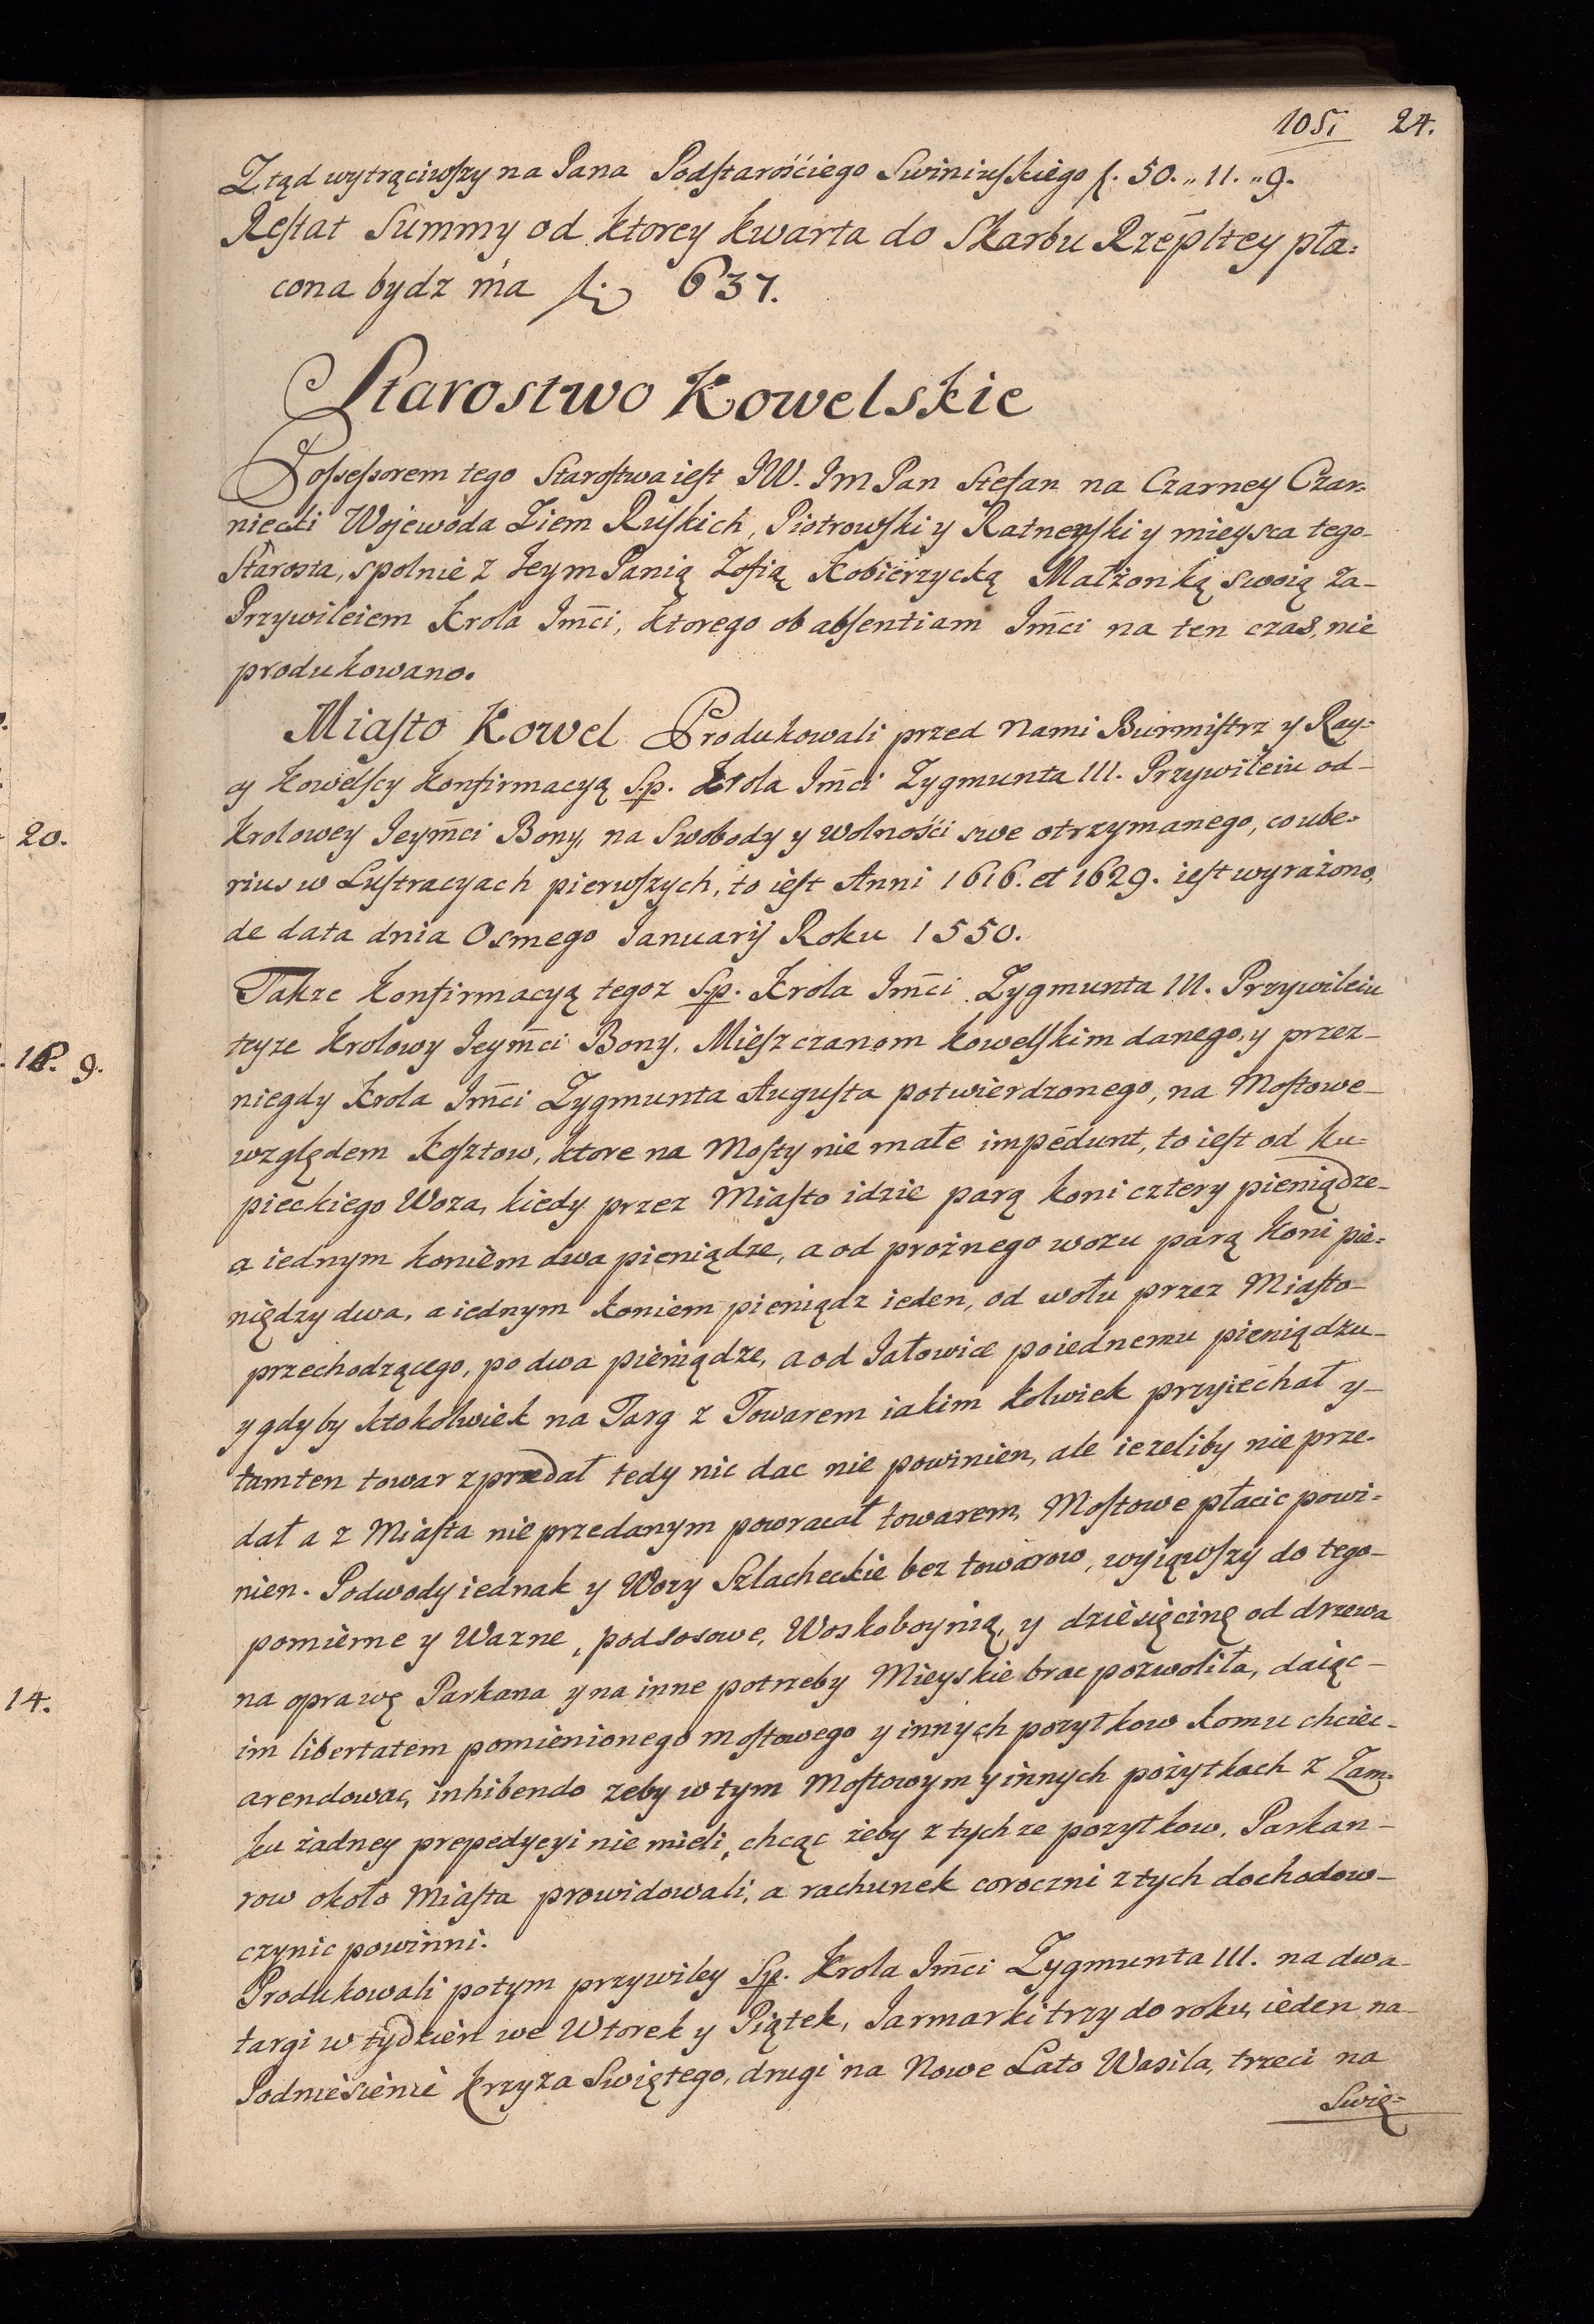 105. 24.
Ztąd wytrąciwszy na Pana Podstarośćiego Swiniuskiego f. 50. „ 11. „ 9.
Restat Summy od ktorey kwarta do Skarbu Rzepltey pła=
cona bydz ma f. 637.
Starostwo Kowelskie
Possessorem tego Starostwa iest JW. Im Pan Stefan na Czarney Czar=
niecki Wojewoda Ziem Ruskich, Piotrowski y Ratnenski y mieysca tego-
Starosta, spolnie z Jeym Panią Zofią Kobierzycką Małżonką swoią za-
Przywileiem Krola Imci, ktorego ob absentiam Imci na ten czas, nie
produkowano.
Miasto Kowel Produkowali przed Nami Burmistrz y Ray=
cy Kowelscy Konfirmacyą S.p. Krola Imci Zygmunta III. Przywileiu od-
Krolowey Jeymci Bony, na Swobody y wolnośći swe otrzymanego, co ube=
rius w Lustracyach pierwszych, to iest Anni 1616. et 1629. iest wyrażono,
de data dnia Osmego Januarij Roku 1550.
Takze Konfirmacyą tegoz S.p. Krola Imci Zygmunta III. Przywileiu
teyze Krolowy Jeymci Bony, Mieszczanom Kowelskim danego, y przez-
niegdy Krola Imci Zygmunta Augusta potwierdzonego, na Mostowe-
względem Kosztow, ktore na Mosty nie małe impedunt, to iest od ku=
pieckiego Woza, kiedy przez Miasto idzie parą koni cztery pieniądze-
a iednym koniem dwa pieniądze, a od prożnego wozu parą koni pie=
niędzy dwa, a iednym koniem pieniądz ieden, od wołu przez Miasto-
przechodzącego, po dwa pieniądze, a od Jałowice po iednemu pieniądzu-
y gdyby ktokolwiek na Targ z Towarem iakim kolwiek przyiechał y-
tam ten towar zprzedał tedy nic dac nie powinien, ale iezeliby nie prze=
dał a z Miasta nie przedanym powracał towarem, Mostowe płacic powi=
nien. Podwody iednak y Wozy Szlacheckie bez towarow, wyiąwszy do tego-
pomierne y Wazne, podsosowe, Woskoboynią, y dziesięcinę od drzewa
na oprawę Parkana y na inne potrzeby Mieyskie brac pozwoliła, daiąc-
im libertatem pomienionego mostowego y innych pozytkow komu chciec-
arendowac, inhibendo zeby w tym Mostowym y innych pożytkach z Zam=
ku żadney prepedycyi nie mieli, chcąc żeby z tychze pozytkow, Parkan-
row około Miasta prowidowali, a rachunek coroczni z tych dochodow-
czynic powinni.
Produkowali potym przywiley S.p. Krola Imci Zygmunta III. na dwa-
targi w tydzień we Wtorek y Piątek, Jarmarki trzy do roku, ieden na-
Podniesienie Krzyza Swiętego, drugi na Nowe Lato Wasila, trzeci na
Swię=
20.
9.
14.